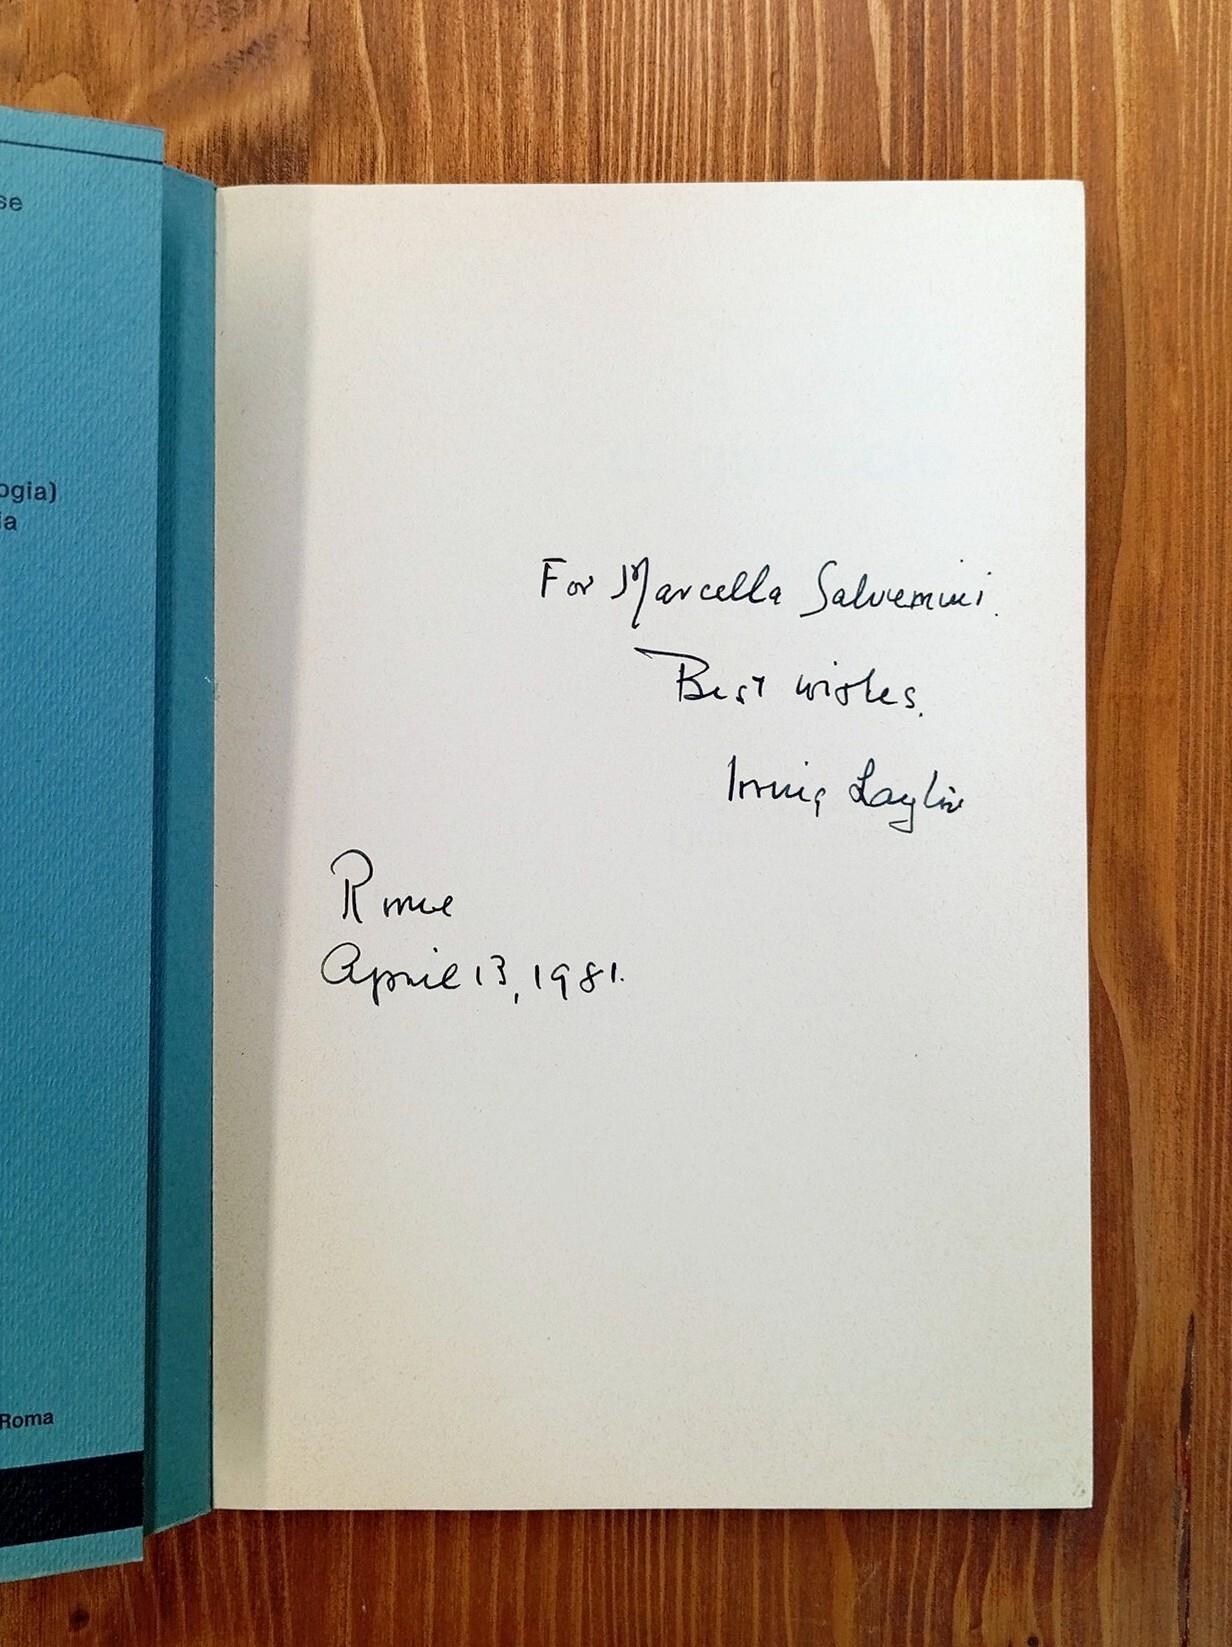 se
ogia)
ia
Roma
For Marcella Salvemini.
Best wishes.
Irving Layton
Rome
April 13, 1981.